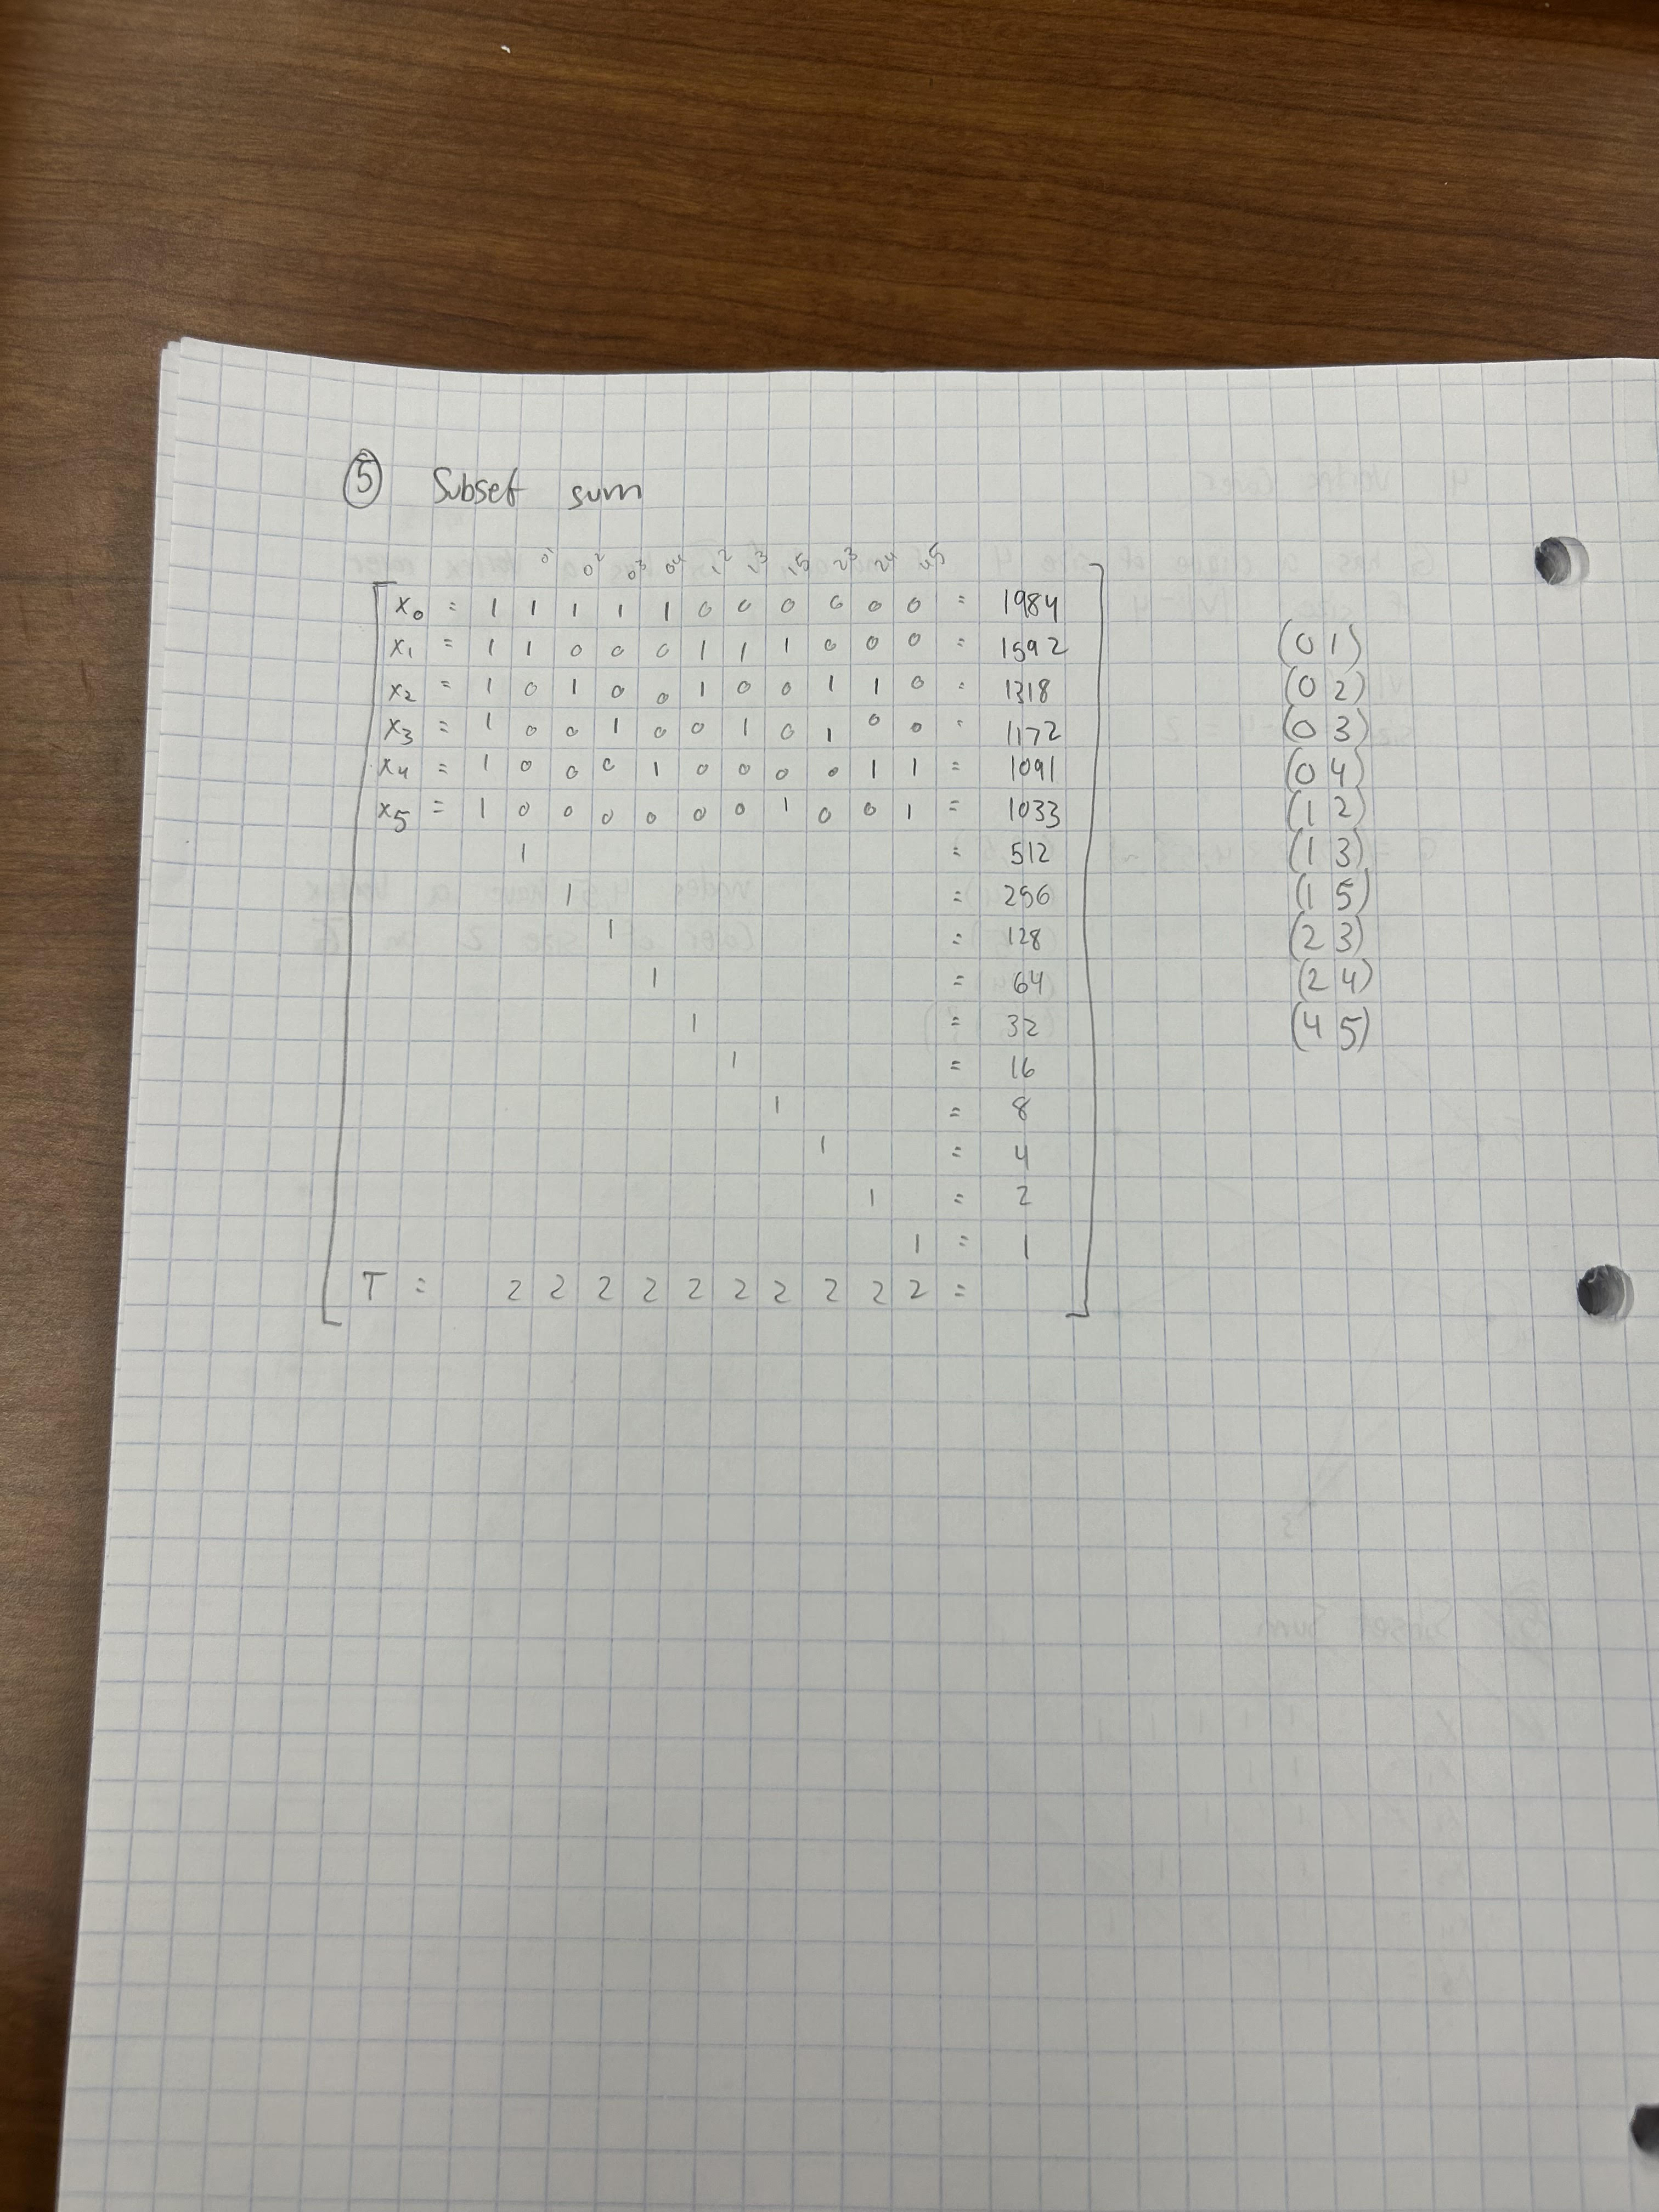 5 Subset sum
01 02 03 04 12 13 15 23 24 45
x0 = 1 1 1 1 1 0 0 0 0 0 0 = 1984
x1 = 1 1 0 0 0 1 1 1 0 0 0 = 1592
x2 = 1 0 1 0 0 1 0 0 1 1 0 = 1318
x3 = 1 0 0 1 0 0 1 0 1 0 0 = 1172
x4 = 1 0 0 0 1 0 0 0 0 1 1 = 1091
x5 = 1 0 0 0 0 0 0 1 0 0 1 = 1033
1 = 512
1 = 256
1 = 128
1 = 64
1 = 32
1 = 16
1 = 8
1 = 4
1 = 2
1 = 1
T = 2 2 2 2 2 2 2 2 2 2 =
(0 1)
(0 2)
(0 3)
(0 4)
(1 2)
(1 3)
(1 5)
(2 3)
(2 4)
(4 5)